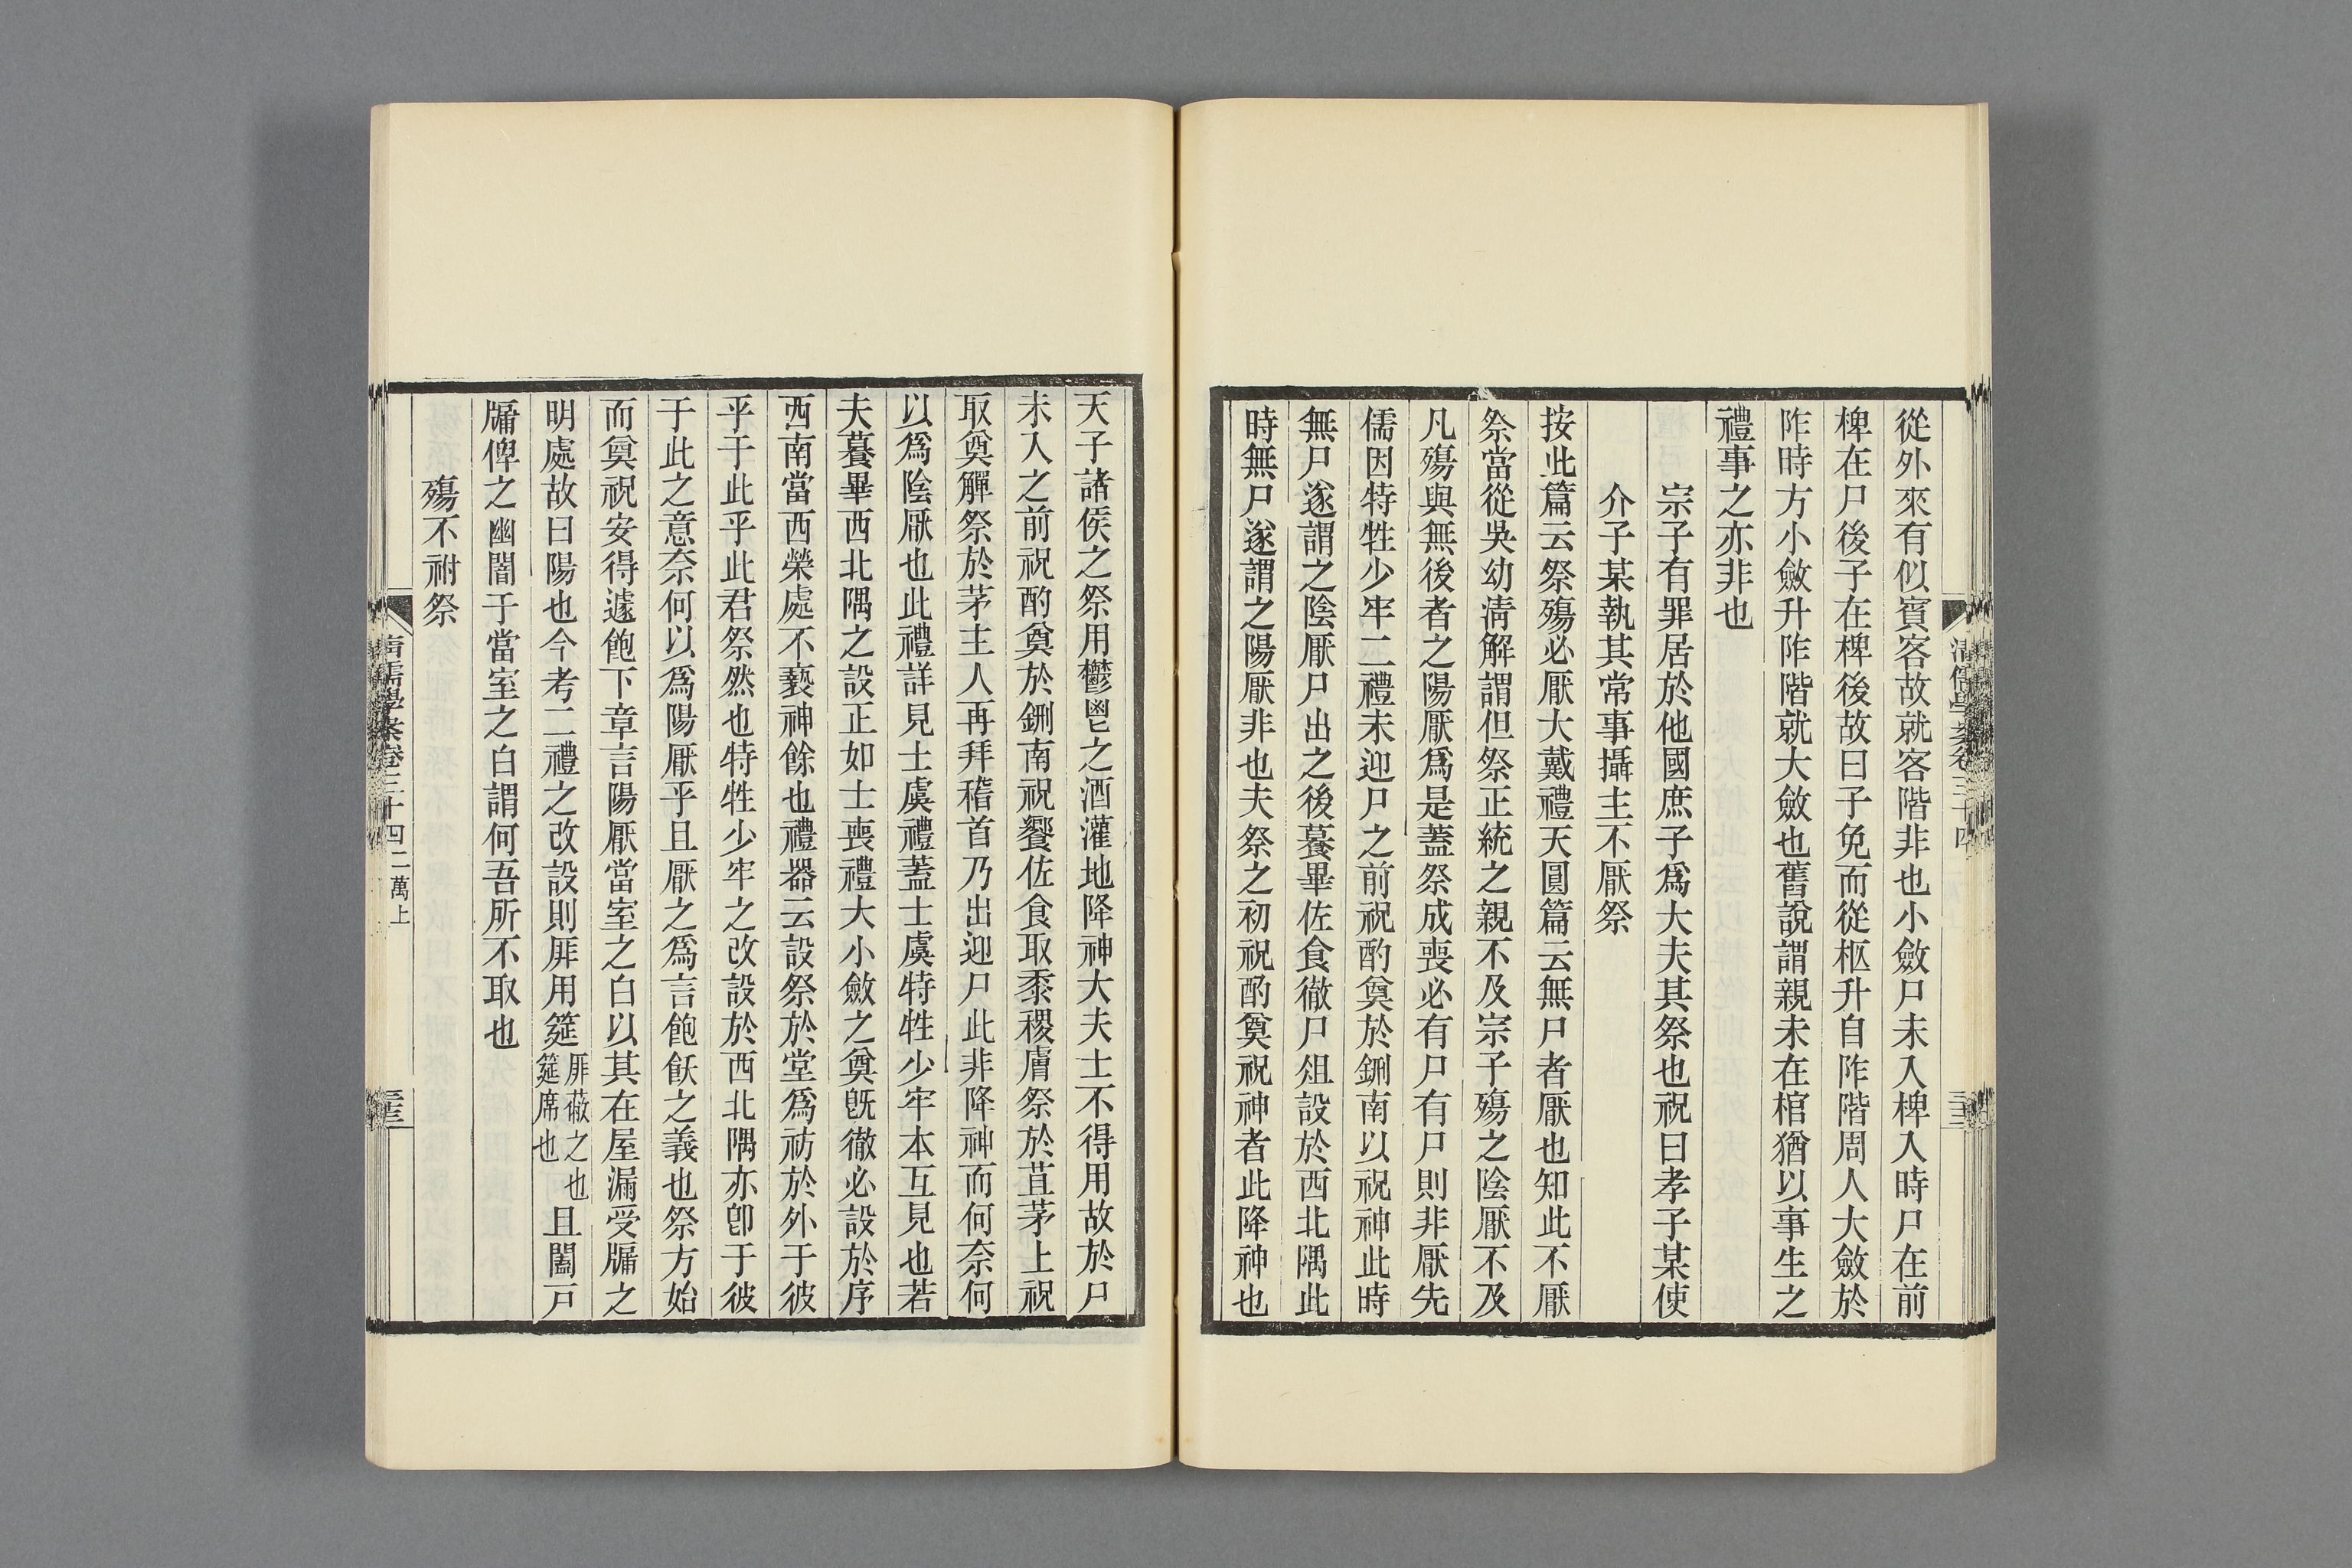 從外來有似賓客故就客階非也小斂尸未入椑入時尸在前
椑在尸後子在椑後故曰子免而從柩升自阼階周人大斂於
阼時方小斂升阼階就大斂也舊說謂親未在棺猶以事生之
禮事之亦非也
宗子有罪居於他國庶子爲大夫其祭也祝曰孝子某使
介子某執其常事攝主不厭祭
按此篇云祭殤必厭大戴禮天圓篇云無尸者厭也知此不厭
祭當從吳幼淸解謂但祭正統之親不及宗子殤之陰厭不及
凡殤與無後者之陽厭爲是蓋祭成喪必有尸有尸則非厭先
儒因特牲少牢二禮未迎尸之前祝酌奠於鉶南以祝神此時
無尸遂謂之陰厭尸出之後養畢佐食徹尸俎設於西北隅此
時無尸遂謂之陽厭非也夫祭之初祝酌奠祝神者此降神也
天子諸侯之祭用鬱鬯之酒灌地降神大夫士不得用故於尸
未入之前祝酌奠於鉶南祝饗佐食取黍稷膚祭於苴茅上祝
取奠觶祭於茅主人再拜稽首乃出迎尸此非降神而何奈何
以爲陰厭也此禮詳見士虞禮蓋士虞特牲少牢本互見也若
夫養畢西北隅之設正如士喪禮大小斂之奠旣徹必設於序
西南當西榮處不褻神餘也禮器云設祭於堂爲祊於外于彼
乎于此乎此君祭然也特牲少牢之改設於西北隅亦卽于彼
于此之意奈何以爲陽厭乎且厭之爲言飽飫之義也祭方始
而奠祝安得遽飽下章言陽厭當室之白以其在屋漏受牖之
明處故曰陽也今考二禮之改設則厞用筵厞蔽之也筵席也且闔戶
牖俾之幽闇于當室之白謂何吾所不取也
殤不祔祭
淸儒學案卷三十四 二萬上